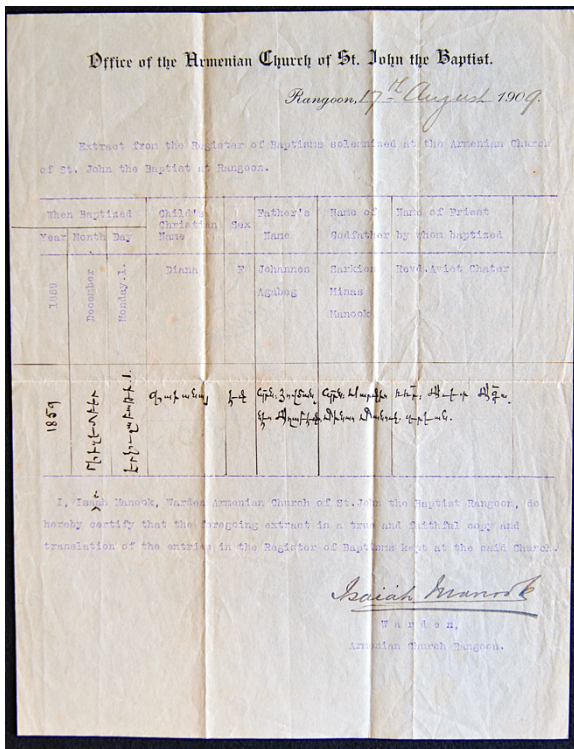 Office of the Armenian Church of St. John the Baptist.
Rangoon, 17th August 1909.
Extract from the Register of Baptisms solemnized at the Armenian Church
of St. John the Baptist at Rangoon.
When Baptized
Child's Christian Name
Sex
Father's Name
Name of Godfather
Name of Priest by whom baptized
Year Month Day
1889
December
Monday.1.
Diana
F
Johannes Agabeg
Sarkies Minas Manook
Revd. Aviet Chater
1859
I, Isaah Manook, Warden Armenian Church of St.John the Baptist Rangoon, do
hereby certify that the foregoing extract is a true and faithful copy and
translation of the entries in the Register of Baptisms kept at the said Church.
Isaiah Manook
Warden,
Armenian Church Rangoon.